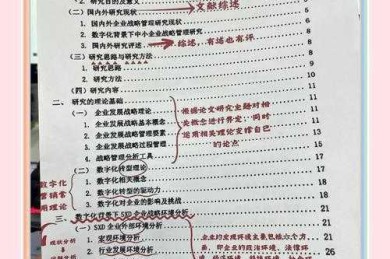 2. 研究目的及意义
(二) 国内外研究现状 文献综述
1. 国内外企业战略管理研究现状 5
2. 数字化背景下中小企业战略管理 5
3. 国内外研究评述 综述，有述也有评 6
(三) 研究思路与研究方法 8
1. 研究思路 8
2. 研究方法 9
(四) 研究内容 9
二、研究的理论基础 11
(一) 企业发展战略理论 11
1. 企业发展战略基本概念 11
2. 企业发展战略管理要素 11
3. 企业发展战略过程管理 11
4. 战略管理分析工具 13
根据论文研究主题对相
关概念进行界定，同时
运用相关理论支撑自己
的论点
(二) 数字化转型理论 15
1. 数字化相关概念 15
2. 数字化转型的驱动力 17
3. 数字化对企业的影响及挑战 18
数字化
营销管
理理论
三、数字化背景下SXD企业战略环境分析 21
(一) SXD企业外部环境分析 21
1. 宏观环境分析 21
2. 行业发展环境分析 26
现状分析
企业的宏观环境主要包括六个方
面，即企业的政治环境、法律环